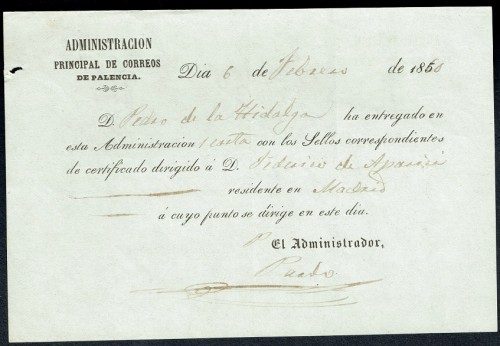 ADMINISTRACION
PRINCIPAL DE CORREOS
DE PALENCIA.
Dia 6 de Febrero de 1850
D. Pedro de la Hidalga ha entregado en
esta Administracion 1 carta con los Sellos correspondientes
de certificado dirigido á D. Federico de Aparicio
residente en Madrid
á cuyo punto se dirige en este dia.
P El Administrador,
Pardo